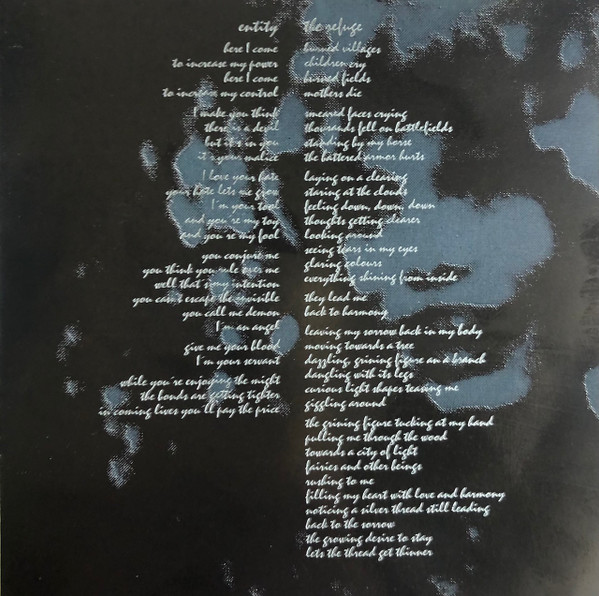 entity
here I come
to increase my power
here I come
to increase my control
I make you think
there is a devil
but it's in you
it's your malice
I love your fate
your hate lets me grow
I'm your tool
and you're my toy
and you're my fool
you conjure me
you think you rule over me
well that's my intention
you can't escape the invisible
you call me demon
I'm an angel
give me your blood
I'm your servant
while you're enjoying the might
the bonds are getting tighter
in coming lives you'll pay the price
the refuge
burned villages
children cry
burned fields
mothers die
smeared faces crying
thousands fell on battlefields
standing by my horse
the battered armor hurts
laying on a clearing
staring at the clouds
feeling down, down, down
thoughts getting clearer
looking around
seeing tears in my eyes
glaring colours
everything shining from inside
they lead me
back to harmony
leaving my sorrow back in my body
moving towards a tree
dazzling, grining figure an a branch
dangling with its legs
curious light shapes teasing me
giggling around
the grining figure tucking at my hand
pulling me through the wood
towards a city of light
fairies and other beings
rushing to me
filling my heart with love and harmony
noticing a silver thread still leading
back to the sorrow
the growing desire to stay
lets the thread get thinner